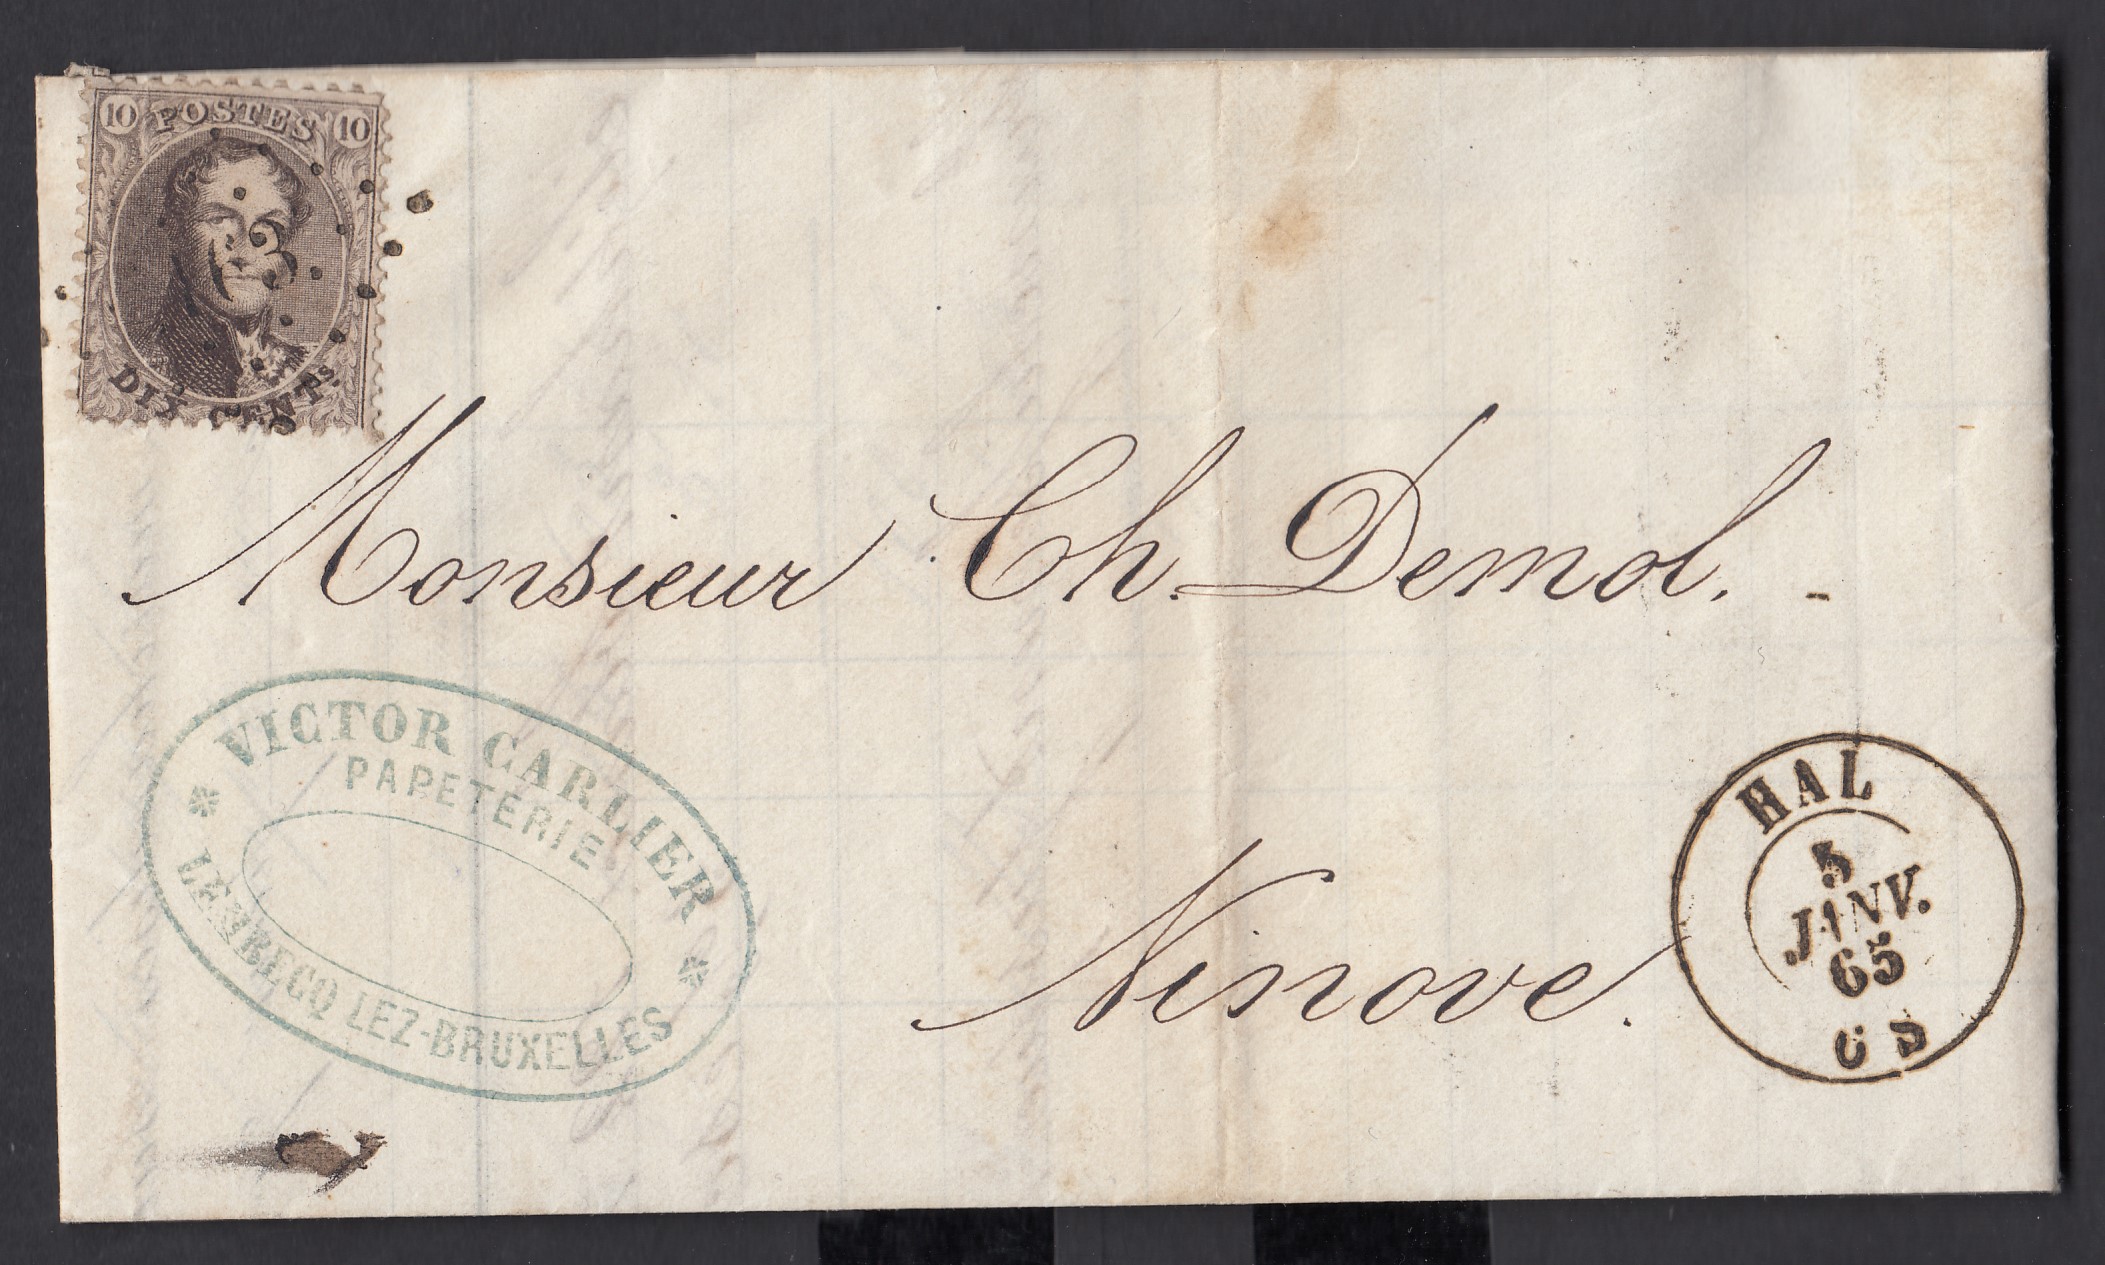 10 POSTES 10
DIX CENTS.
Monsieur Ch. Demol.
VICTOR CARLIER
PAPETERIE
LEMBECQ LEZ-BRUXELLES
Ninove.
HAL
5
JANV.
65